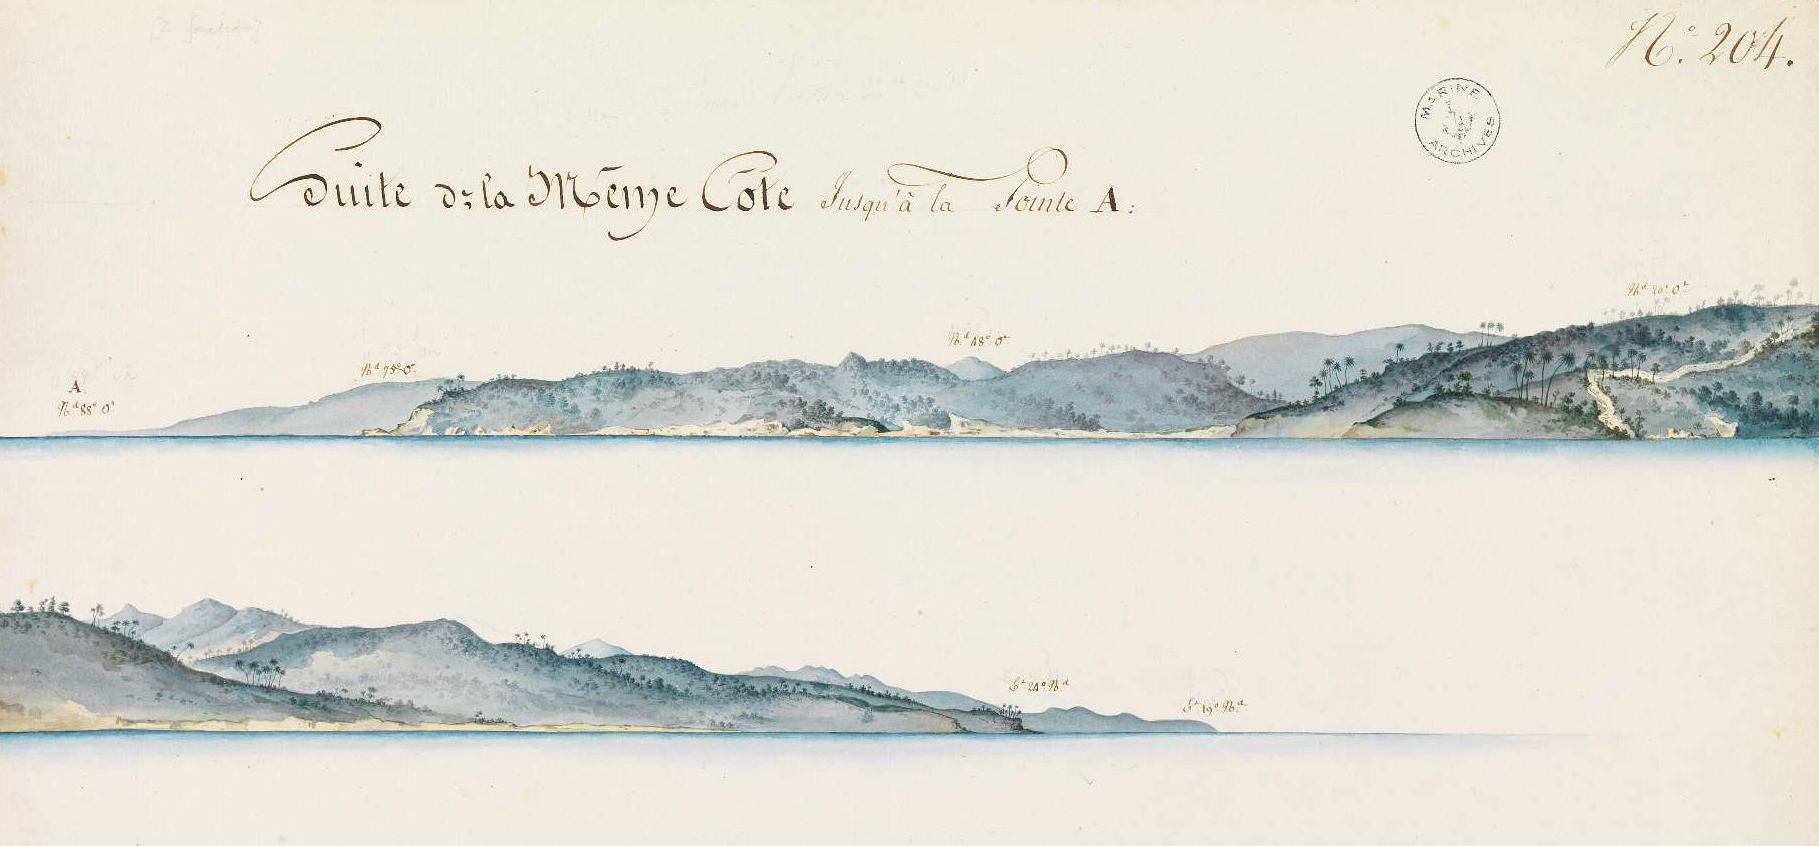 N.° 204.
MARINE ARCHIVES
Suite de la Même Côte Jusqu'à la Pointe A:
N.d 20° O.t
N.d 48° O.t
N.d 75° O.t
A.
N.d 88° O.t
E.t 24° N.d
E.t 19° N.d